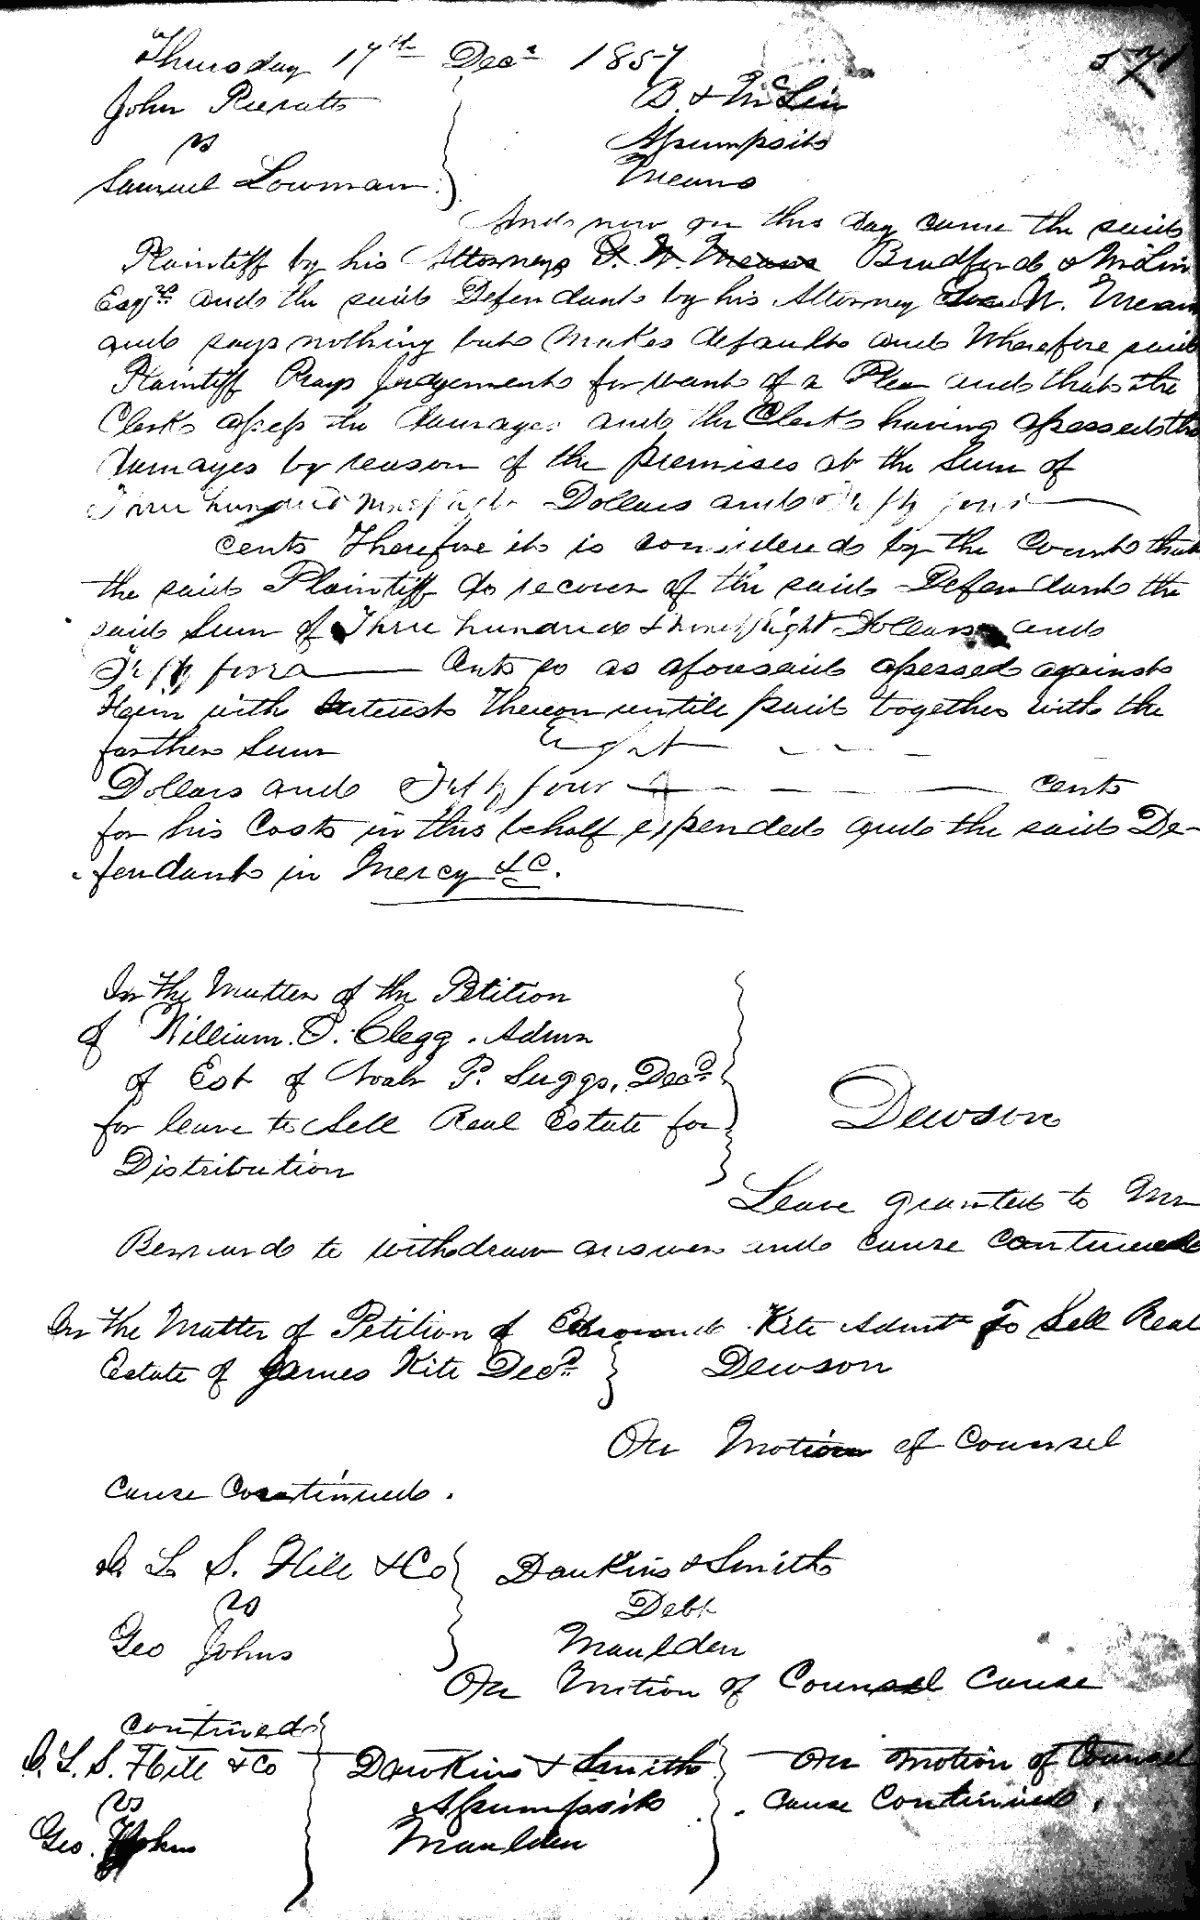 Thursday 17th Decr 1857 571
John Pieratt B & McLin
vs Assumpsit
Samuel Lowman Means
And now on this day came the said
Plaintiff by his Attorneys D. W. Means Bradford & McLin
Esqrs and the said Defendant by his Attorney W. Means
and says nothing but makes default and Wherefore said
Plaintiff Prays Judgement for want of a Plea and that the
Clerk assess the damages and the Clerk having assessed the
damages by reason of the premises at the Sum of
Three hundred ninety eight Dollars and Fifty four
cents Therefore it is considered by the Court that
the said Plaintiff do recover of the said Defendant the
said Sum of Three hundred & ninety eight Dollars and
Fifty four Cents so as aforesaid assessed against
Him with Interest Thereon untill paid together with the
farther Sum Eight
Dollars and Fifty four cents
for his Costs in this behalf expended and the said De-
fendant in Mercy &C.
In the Matter of the Petition
of William C. Clegg. Admr
of Est of Noah P. Suggs, Decd
for leave to Sell Real Estate for Dewson
Distribution
Leave granted to Mr
Bernard to withdraw answer and cause Continued
In the Matter of Petition of Edmund Kite Admt To Sell Real
Estate of James Kite Decd Dewson
On Motion of Counsel
cause Continued.
I. L. S. Hill & Co Dawkins & Smith
vs Debt
Geo Johns Maulden
On Motion of Counsel Cause
continued
I. L. S. Hill & Co Dawkins & Smith On Motion of Counsel
vs Assumpsit Cause Continued.
Geo. Johns Maulden